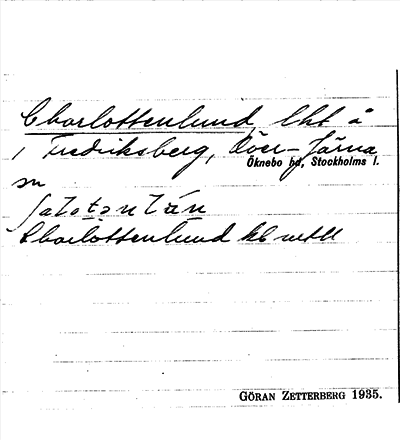 Charlottenlund, lht å
1 Fredriksberg, Över-Järna
Öknebo hd, Stockholms l.
sn
Charlottenlund
GÖRAN ZETTERBERG 1935.